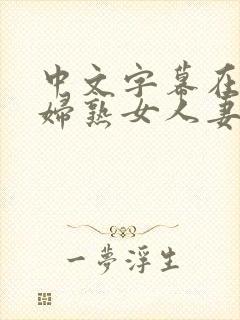 中文字幕在
婦熟女人妻
一夢浮生